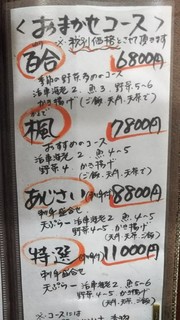 ＜おまかせコース＞
※税別価格とさせて頂きます
百合 6800円
季節の野菜多めのコース
活車海老2、魚3、野菜5~6
かき揚げ (ご飯、天丼、天茶で)
楓 7800円
おすすめのコース
活車海老2 魚4~5
野菜4 かき揚げ
(ご飯、天丼、天茶で)
あじさい 8800円
刺身盛合せ
天ぷらー活車海老2、魚4~5
野菜4~5 かき揚げ
(ご飯、天丼、天茶)
特選 11000円
刺身盛合せ
天ぷらー活車海老2、魚4~5
野菜4~5 かき揚げ
(ご飯、天丼、天茶)
※コースには